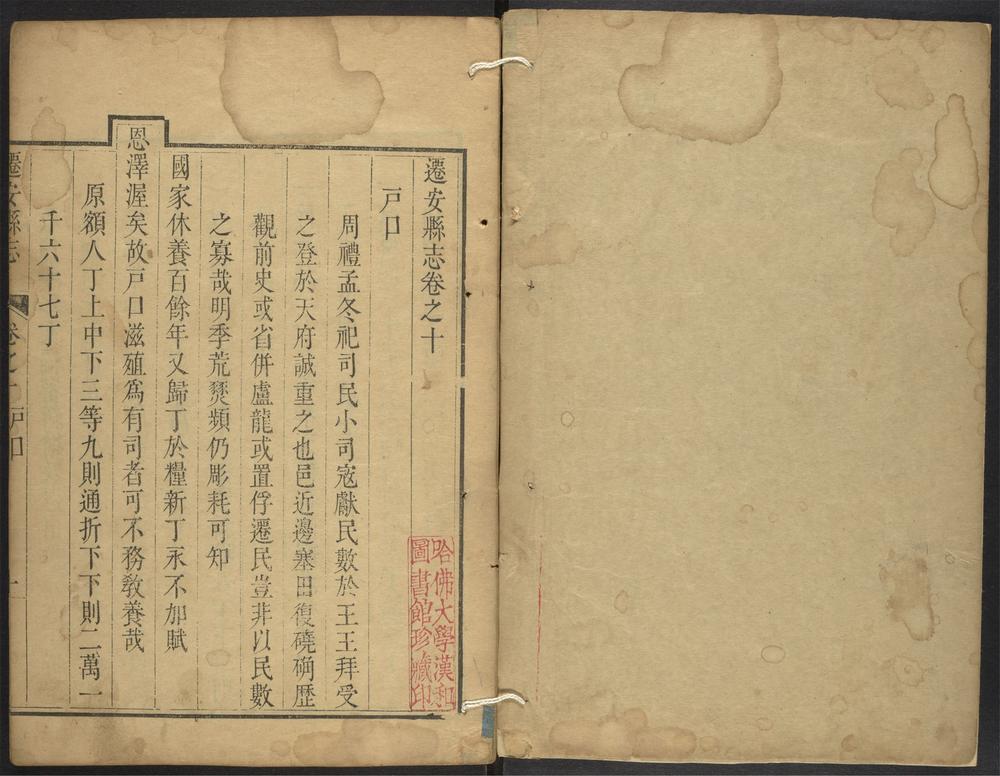 遷安縣志卷之十
戸口
周禮孟冬祀司民小司宼獻民數於王王拜受
之登於天府誠重之也邑近邊塞田復磽确歷
觀前史或省併盧龍或置俘遷民豈非以民數
之寡哉明季荒燹頻仍彫耗可知
國家休養百餘年又歸丁於糧新丁永不加賦
恩澤渥矣故戸口滋殖爲有司者可不務敎養哉
原額人丁上中下三等九則通折下下則二萬一
千六十七丁
遷安縣志 卷之十 戸口 一
哈佛大學漢和
圖書館珍藏印